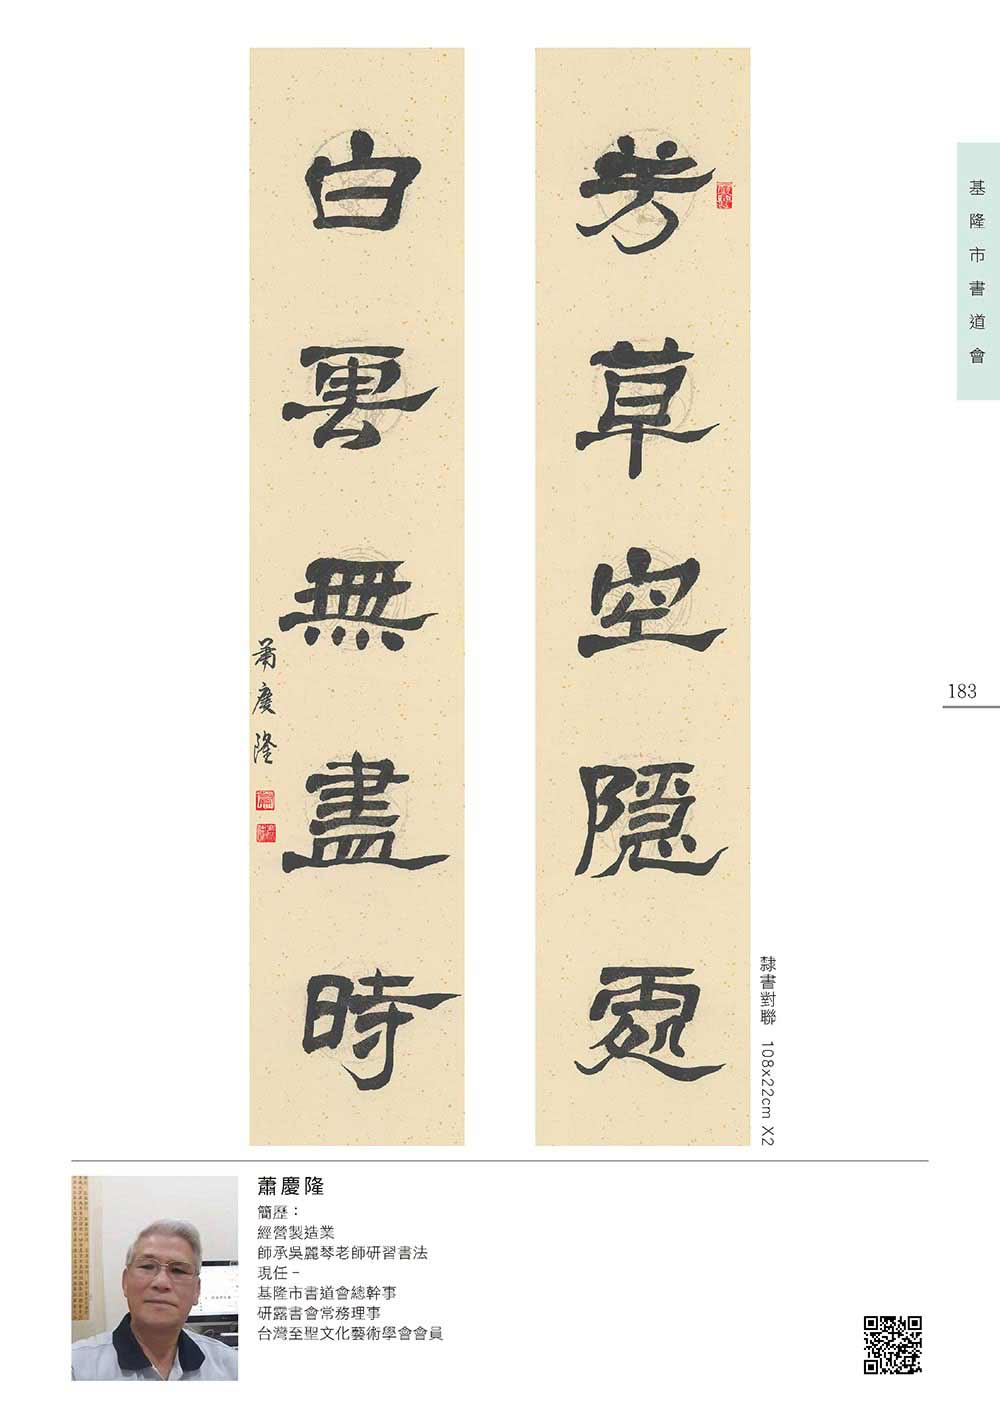 芳草空隱處
白雲無盡時
蕭慶隆
隸書對聯 108x22cm X2
基隆市書道會
183
蕭慶隆
簡歷：
經營製造業
師承吳麗琴老師研習書法
現任－
基隆市書道會總幹事
研露書會常務理事
台灣至聖文化藝術學會會員